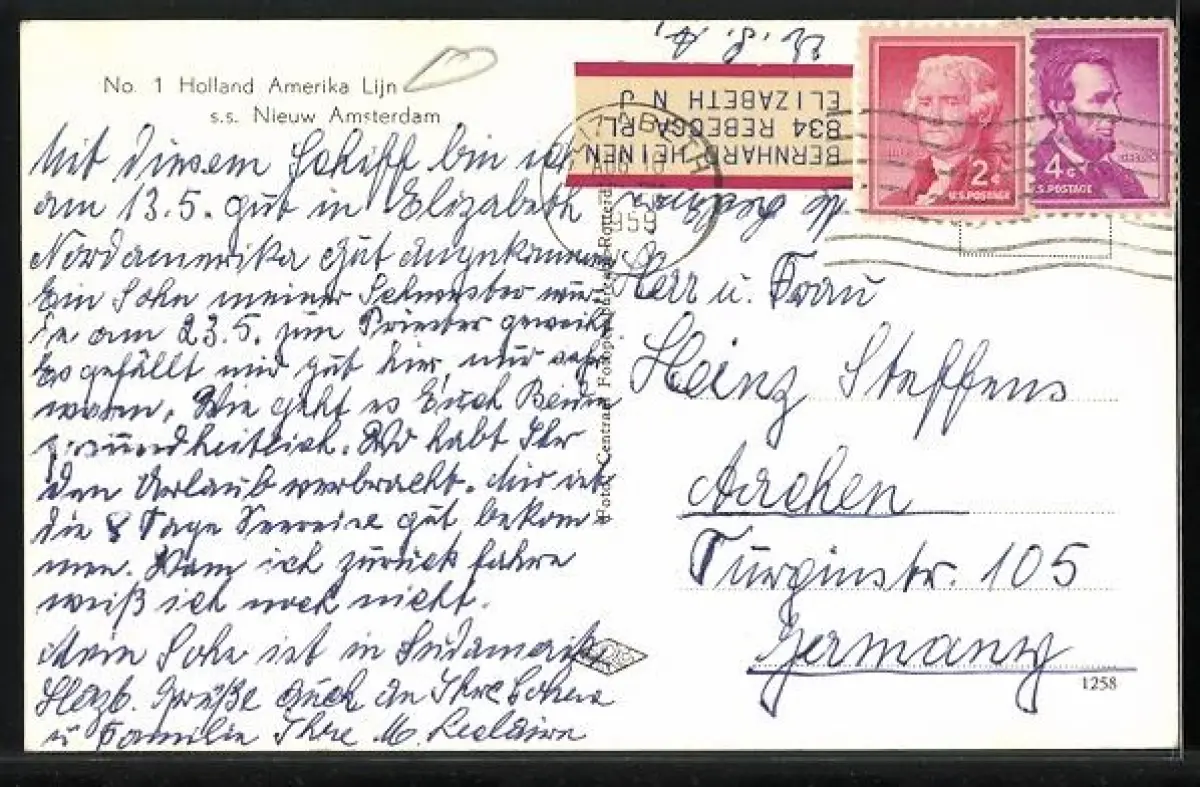 No. 1 Holland Amerika Lijn
s.s. Nieuw Amsterdam
Mit diesem Schiff bin ich
am 13.5. gut in Elizabeth
Nordamerika gut angekommen
Ein Sohn meiner Schwester wur-
de am 23.5. zum Priester geweiht.
Es gefällt mir gut hier, nur sehr
warm. Wie geht es Euch Beiden
gesundheitlich. Wo habt Ihr
den Urlaub verbracht. Mir ist
die 8 Tage Seereise gut bekom-
men. Wann ich zurück fahre
weiß ich noch nicht.
Mein Sohn ist in Südamerika
Herzl. Grüße auch an Ihre
u Familie Ihre M.
BERNHARD HEINEN
834 REBECCA PL
ELIZABETH N J
U.S.A.
ELIZABETH
AUG 10
1959
2¢
U.S. POSTAGE
4¢
U.S. POSTAGE
Herr u. Frau
Heinz Steffens
Aachen
Türpinstr. 105
Germany
1258
Foto: Centraal Fotopersbureau Rotterdam